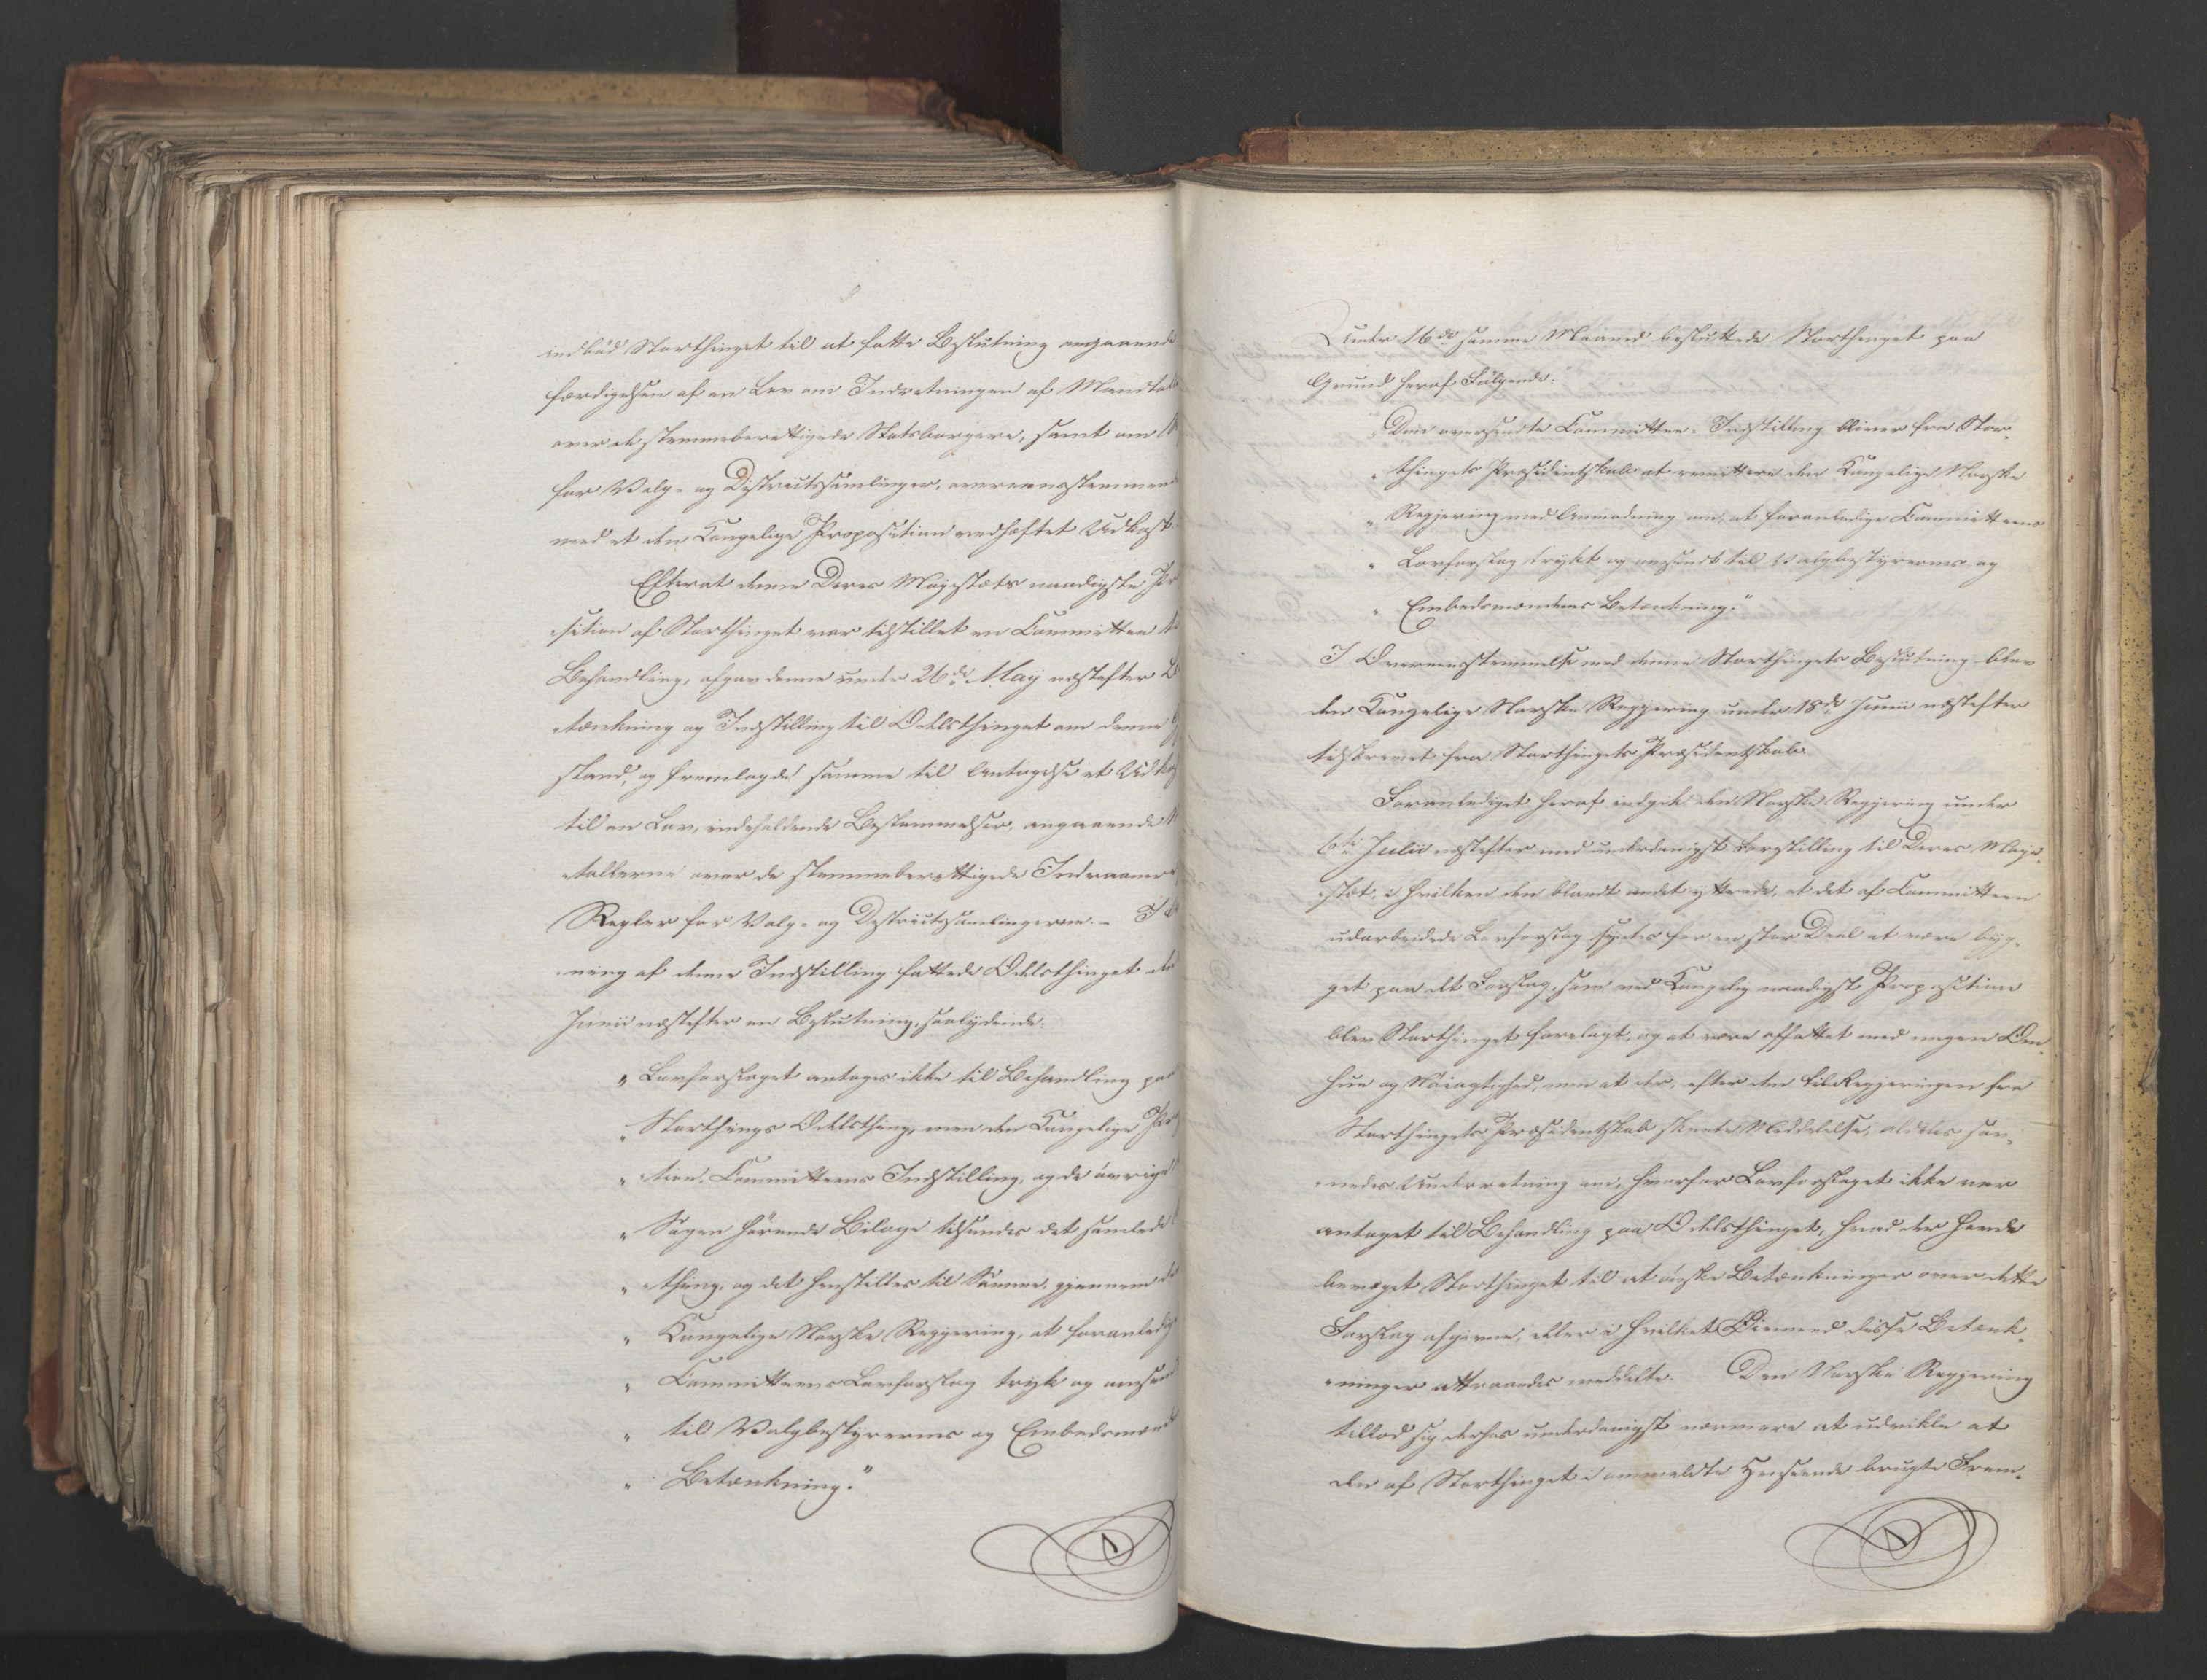 indbød Storthinget til at fatte Beslutning angaaende
færdigelsen af en Lov om Indretningen af Mandtal
over de stemmeberettigede Statsborgere, samt om
for Valg- og Districtssamlinger, overeensstemmende
med et den Kongelige Proposition vedhæftet Udkast.
Efterat denne Deres Majestæts naadigste Pro
sition af Storthinget var tilstillet en Committee
Behandling, afgav denne under 26de May næstefter Be
tænkning og Indstilling til Odelsthinget om denne
stand, og fremlagde samme til Antagelse et Udkast
til en Lov, indeholdende Bestemmelser, angaaende
tallerne over de stemmeberettigede Indvaanere
Regler for Valg- og Districtssamlingerne. - I
ning af denne Indstilling fattede Odelsthinget den
Junii næstefter en Beslutning, saalydende:
„ Lovforslaget antages ikke til Behandling paa
„ Storthings Odelsthing, men den Kongelige Pro
„ tion, Committeens Indstilling, og de øvrige
„ Sagen hørende Bilage tilsendes det samlede
„ thing, og det henstilles til Samme, gjennem den
„ Kongelige Norske Regjering, at foranledige
„ Committeens Lovforslag trykt og omsendt
„ til Valgbestyrernes og Embedsmænd
„ Betænkning."
Under 16de samme Maaned besluttede Storthinget paa
Grund heraf Følgende:
„ Den oversendte Committee-Indstilling bliver fra Stor-
„ thingets Præsidentskab at remittere den Kongelige Norske
„ Regjering med Anmodning om, at foranledige Committeens
„ Lovforslag trykt og omsendt til Valgbestyrernes og
„ Embedsmændenes Betænkning."
I Overeensstemmelse med denne Storthingets Beslutning blev
den Kongelige Norske Regjering under 18de Junii næstefter
tilskrevet fra Storthingets Præsidentskab.
Foranlediget heraf indgik den Norske Regjering under
6te Julii næstefter med underdanigst Forestilling til Deres Maje-
stæt, i hvilken den blandt andet yttrede, at det af Committeen
udarbeidede Lovforslag syntes for en stor Deel at være byg-
get paa det Forslag, som ved Kongelig naadigst Proposition
blev Storthinget forelagt, og at være affattet med megen Om-
hue og Nøiagtighed, men at der, efter den til Regjeringen fra
Storthingets Præsidentskab skeete Meddelelse, aldeles sav-
nedes Underretning om, hvorfor Lovforslaget ikke var
antaget til Behandling paa Odelsthinget, hvad der havde
bevæget Storthinget til at ønske Betænkninger over dette
Forslag afgivne, eller i hvilket Øiemed disse Betænk-
ninger attraaedes meddelte. Den Norske Regjering
tillod sig derhos underdanigst nærmere at udvikle at
den af Storthinget i ommeldte Henseende brugte Frem-